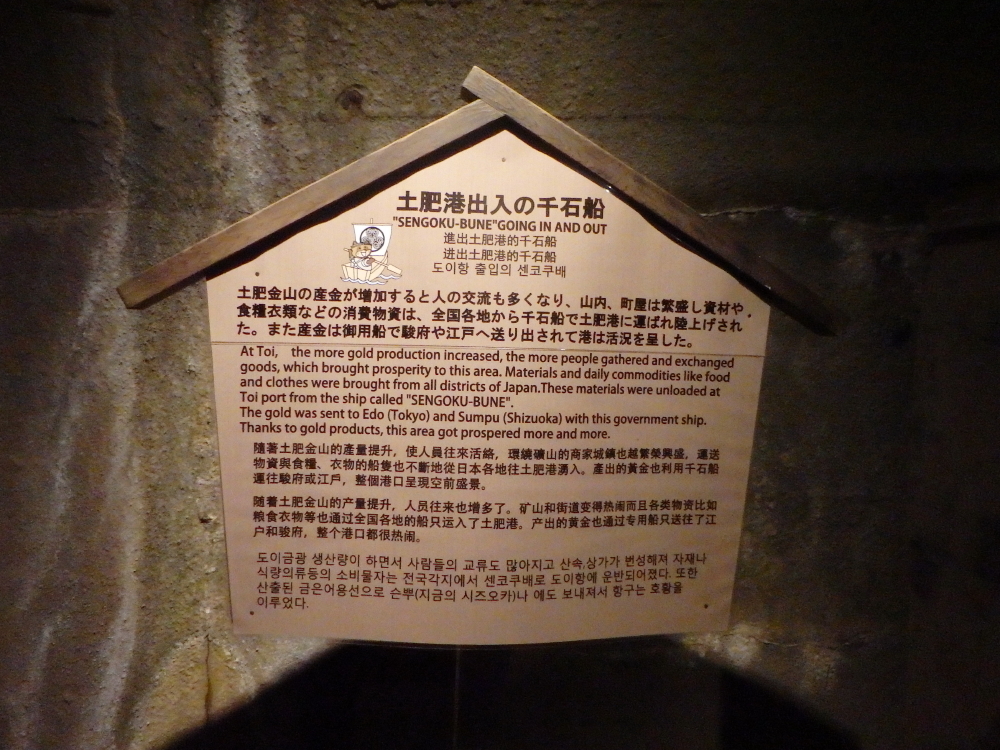 土肥港出入の千石船
"SENGOKU-BUNE"GOING IN AND OUT
進出土肥港的千石船
进出土肥港的千石船
도이항 출입의 센코쿠배
土肥金山の産金が増加すると人の交流も多くなり、山内、町屋は繁盛し資材や
食糧衣類などの消費物資は、全国各地から千石船で土肥港に運ばれ陸上げされ
た。また産金は御用船で駿府や江戸へ送り出されて港は活況を呈した。
At Toi, the more gold production increased, the more people gathered and exchanged
goods, which brought prosperity to this area. Materials and daily commodities like food
and clothes were brought from all districts of Japan.These materials were unloaded at
Toi port from the ship called "SENGOKU-BUNE".
The gold was sent to Edo (Tokyo) and Sumpu (Shizuoka) with this government ship.
Thanks to gold products, this area got prospered more and more.
隨著土肥金山的產量提升，使人員往來活絡，環繞礦山的商家城鎮也越繁榮興盛，運送
物資與食糧、衣物的船隻也不斷地從日本各地往土肥港湧入。產出的黃金也利用千石船
運往駿府或江戶，整個港口呈現空前盛景。
随着土肥金山的产量提升，人员往来也增多了。矿山和街道变得热闹而且各类物资比如
粮食衣物等也通过全国各地的船只运入了土肥港。产出的黄金也通过专用船只送往了江
户和骏府，整个港口都很热闹。
도이금광 생산량이 하면서 사람들의 교류도 많아지고 산속,상가가 번성해져 자재나
식량의류등의 소비물자는 전국각지에서 센코쿠배로 도이항에 운반되어졌다. 또한
산출된 금은어용선으로 슨뿌(지금의 시즈오카)나 에도 보내져서 항구는 호황을
이루었다.